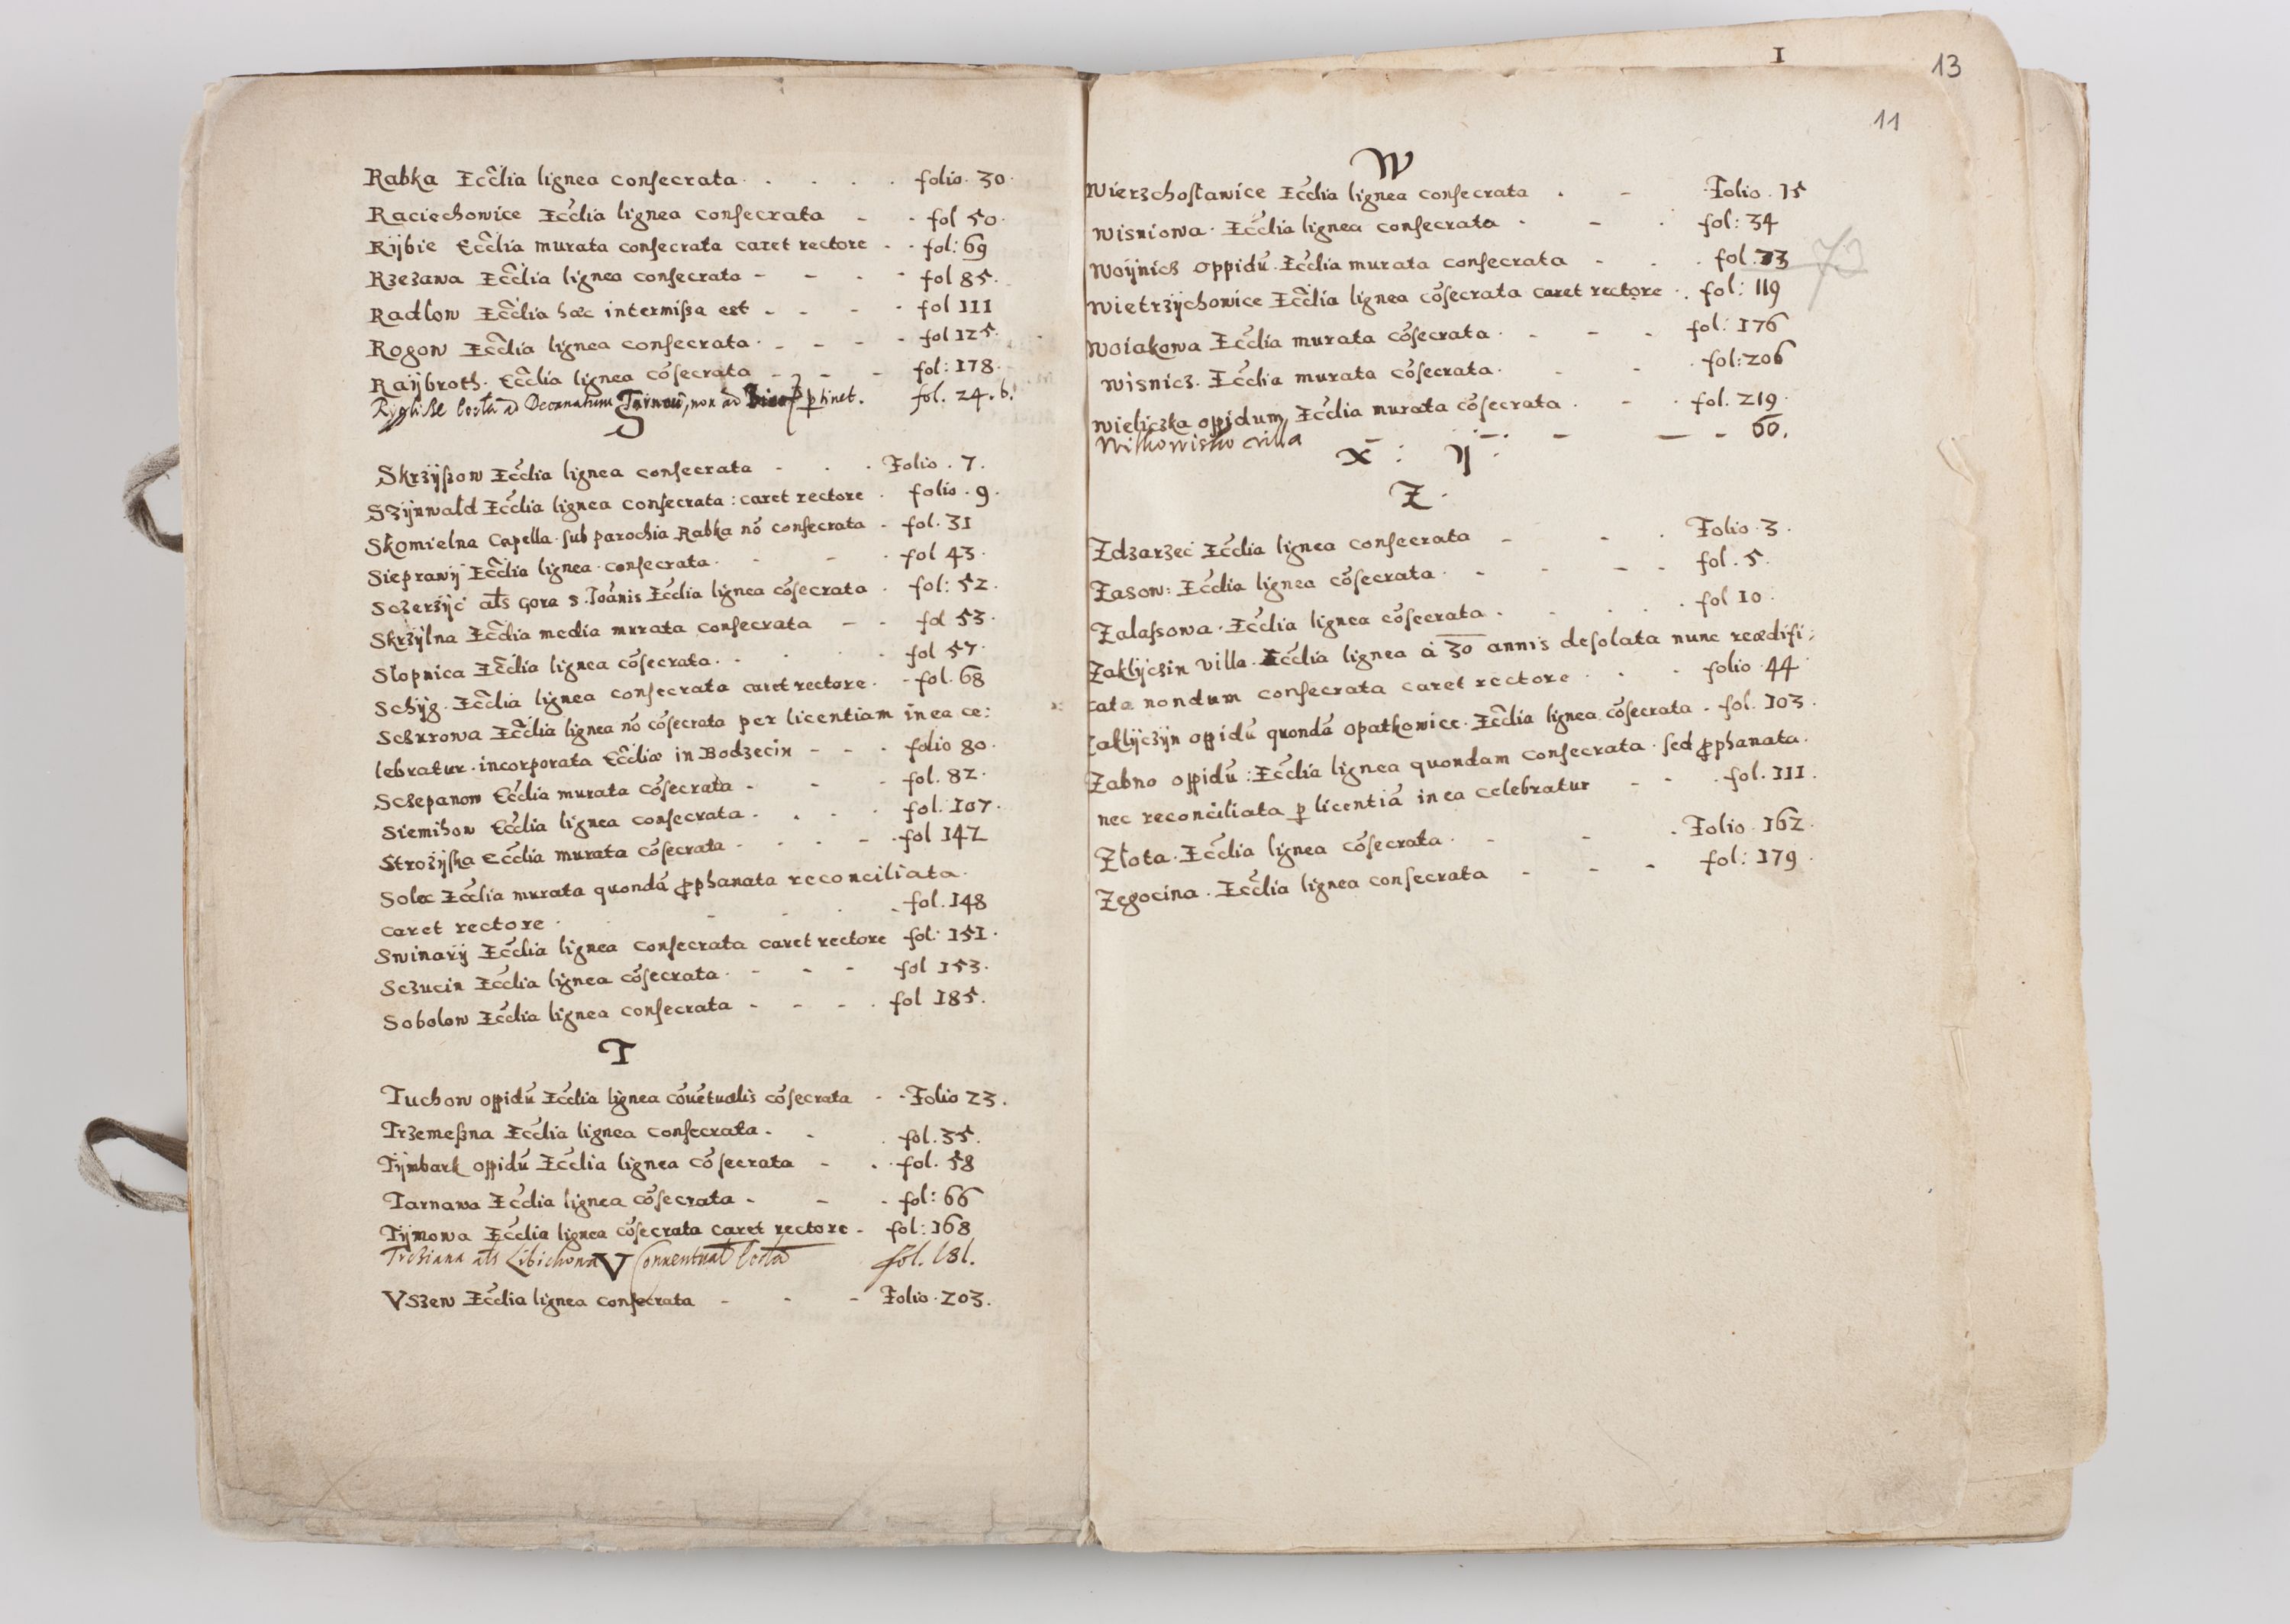 Rabka Eccľia lignea consecrata . . . . folio. 30.
Raciechowice Eccľia lignea consecrata - . fol 50.
Rÿbie Eccľia murata consecrata caret rectore - . fol: 69
Rzezawa Eccľia lignea consecrata - - - - fol 85.
Radłow Eccľia hæc intermißa est - - - . fol 111
Rogow Eccľia lignea consecrata . - - - - fol 125.
Raÿbroth. Eccľia lignea cõsecrata - - - fol: 178.
ad Decanatum non ad ꝑtinet. fol. 24. b.
S
Skrzÿßow Eccľia lignea consecrata - . . Folio . 7.
Szÿnwałd Eccľia lignea consecrata : caret rectore . folio . 9.
Skomielna Capella . sub parochia Rabka nõ consecrata - fol. 31
Sieprawÿ Eccľia lignea . consecrata. - - . fol 43.
Sczerzÿć ałs Gora S. Joãnis Eccľia lignea cõsecrata . fol: 52.
Skrzÿlna Eccľia media murata consecrata - - fol 53.
Słopnica Eccľia lignea cõsecrata. - . . fol 57.
Schÿg. Eccľia lignea consecrata caret rectore. - fol. 68
Sczurowa Eccľia lignea nõ cõsecrata per licentiam in ea ce:
lebratur . incorporata Eccľiæ in Bodzecin - - . folio 80.
Sczepanow Eccľia murata cõsecrata - - - fol. 82.
Siemihow Eccľia lignea consecrata. . . . fol. 107.
Strozÿska Eccľia murata cõsecrata - . . - . fol 142
Solec Eccľia murata quondã ꝓphanata reconciliata.
caret rectore . - - . . fol. 148
Swinarÿ Eccľia lignea consecrata caret rectore fol: 151.
Sczucin Eccľia lignea cõsecrata. - - - fol 153.
Sobolow Eccľia lignea consecrata - - - . fol 185.
T
Tuchow oppidũ Eccľia lignea cõuẽtualis cõsecrata - - Folio 23.
Trzemeßna Eccľia lignea consecrata . . . fol. 35.
Tÿmbark oppidũ Eccľia lignea cõsecrata - . . fol. 58
Tarnawa Eccľia lignea cõsecrata - - . fol: 66
Tÿmowa Eccľia lignea cõsecrata caret rectore - fol: 168
Trzciana ałs Libichowa Conventual Eccľia fol. 181.
V
Vszew Eccľia lignea consecrata - - - Folio. 203.
1
13
11
W
Wierzchosławice Eccľia lignea consecrata . - . Folio . 15
Wisniowa . Eccľia lignea consecrata . - . fol: 34
Woÿnicz oppidũ . Eccľia murata consecrata - . . fol. 73 73
Wietrzÿchowice Eccľia lignea cõsecrata caret rectore . . fol: 119
Woiakowa Eccľia murata cõsecrata . - - - fol: 176
Wisnicz . Eccľia murata cõsecrata. - . fol: 206
Wieliczka oppidum Eccľia murata cõsecrata . - . fol. 219.
Witkowisko villa - - - - - 60.
X : Y :
Z.
Zdzarzec Eccľia lignea consecrata - - . Folio . 3.
Zasow: Eccľia lignea cõsecrata . - - - - fol. 5.
Zalassowa . Eccľia lignea cõsecrata . . . . . fol 10.
Zaklÿczin villa . Eccľia lignea à 30 annis desolata nunc reædifi:
cata nondum consecrata caret rectore . . . folio . 44
Zaklÿczÿn oppidũ quondã Opatkowice . Eccľia lignea cõsecrata . fol. 103.
Zabno oppidũ : Eccľia lignea quondam consecrata . sed ꝓphanata.
nec reconciliata ꝑ licentiã in ea celebratur - - . fol. 111.
Złota . Eccľia lignea cõsecrata . - - . Folio . 162.
Zegocina . Eccľia lignea consecrata - - - fol: 179.